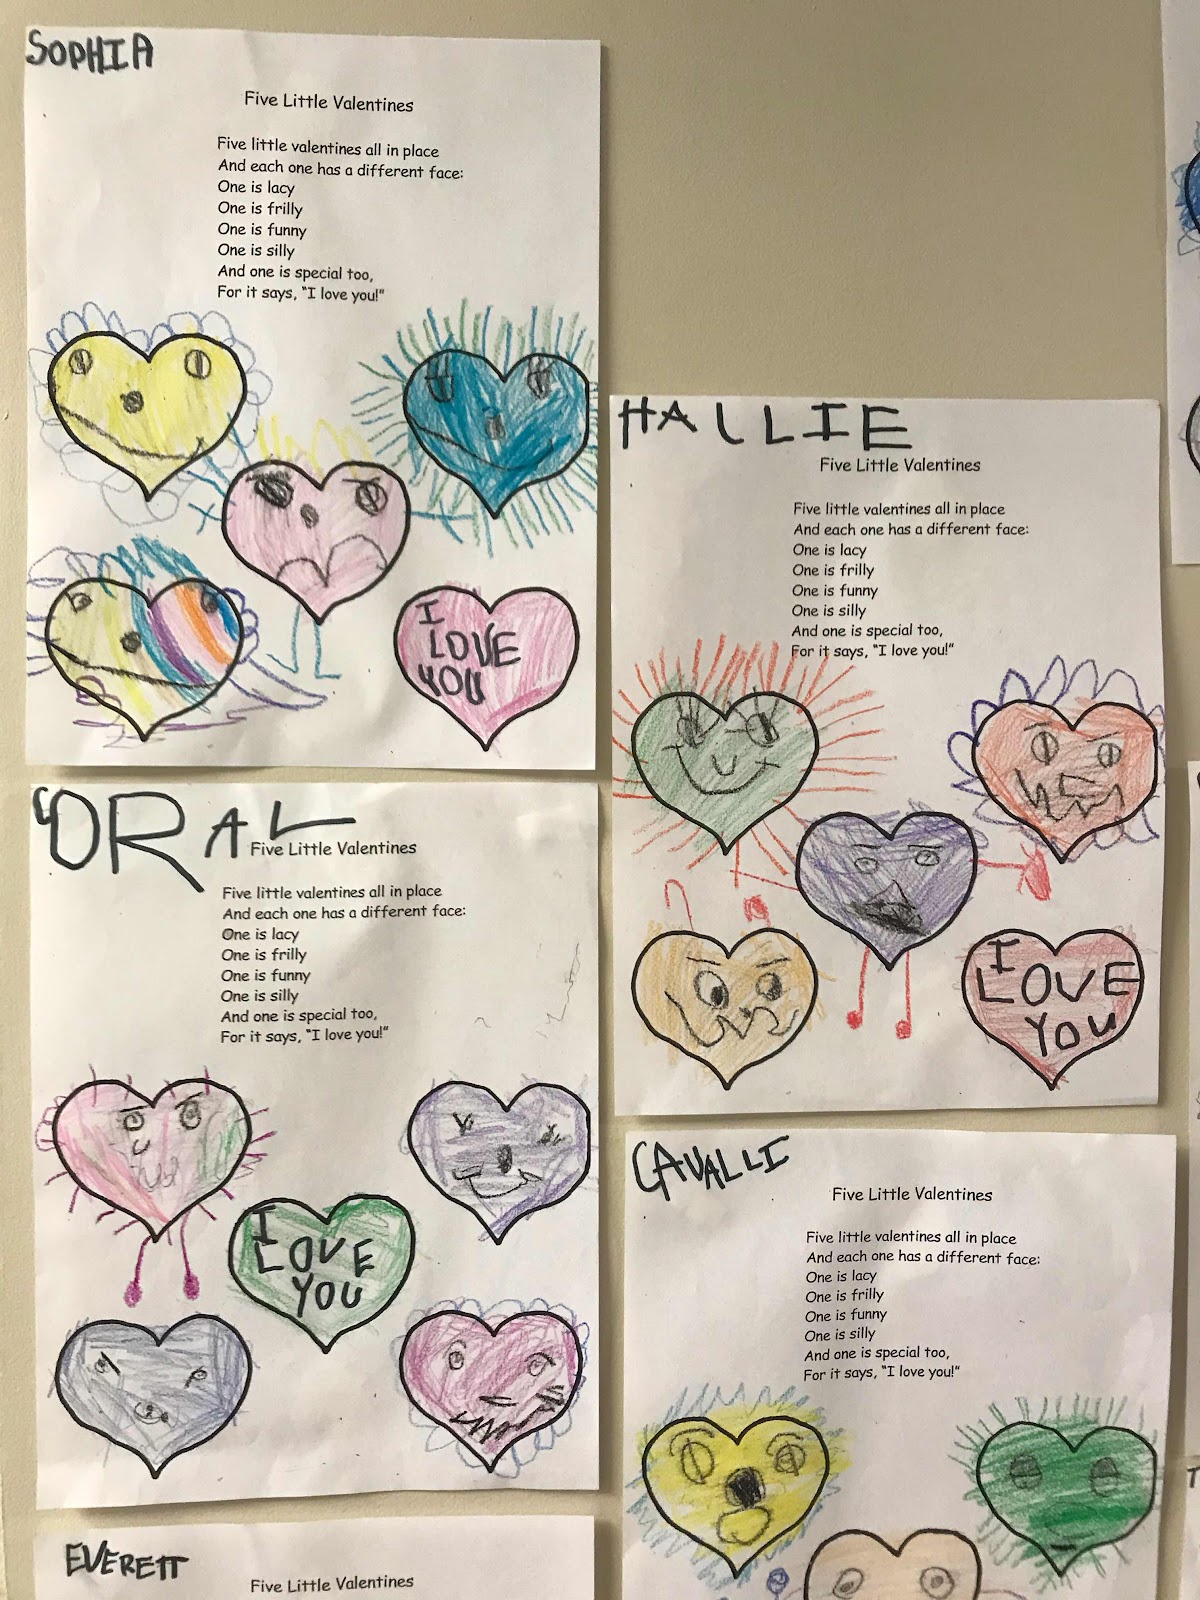 SOPHIA
Five Little Valentines
Five little valentines all in place
And each one has a different face:
One is lacy
One is frilly
One is funny
One is silly
And one is special too,
For it says, "I love you!"
I
LOVE
YOU
HALLIE
Five Little Valentines
Five little valentines all in place
And each one has a different face:
One is lacy
One is frilly
One is funny
One is silly
And one is special too,
For it says, "I love you!"
I
LOVE
YOU
ORAL
Five Little Valentines
Five little valentines all in place
And each one has a different face:
One is lacy
One is frilly
One is funny
One is silly
And one is special too,
For it says, "I love you!"
I
LOVE
YOU
CAVALLI
Five Little Valentines
Five little valentines all in place
And each one has a different face:
One is lacy
One is frilly
One is funny
One is silly
And one is special too,
For it says, "I love you!"
EVERETT
Five Little Valentines